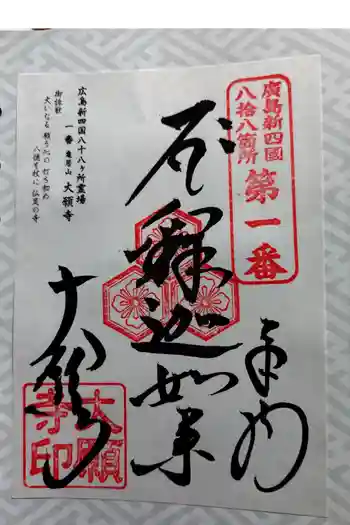 廣島新四國
八拾八箇所
第一番
奉納
釋迦如来
大願寺
大願寺印
広島新四国八十八ヶ所霊場
一番 亀居山 大願寺
御詠歌
大いなる 願う心の 打ち初め
八徳を杖に 仏見の寺